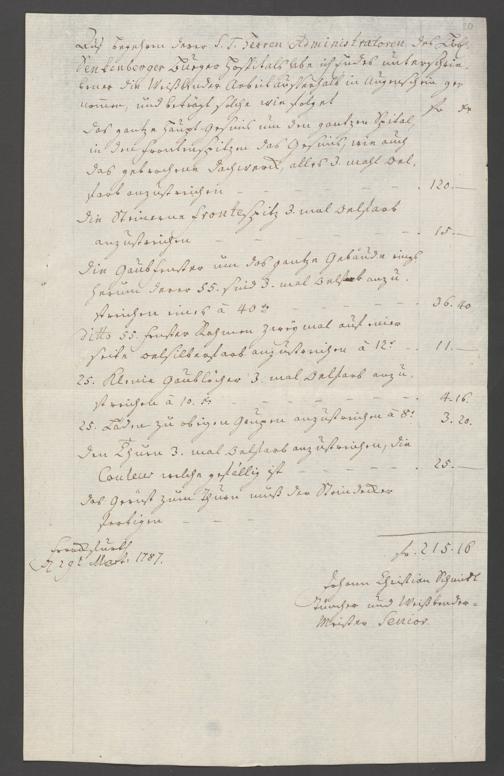 20
Auf begehren derer S. T. Herren Administratoren des Löbl.
Senkenberger Bürger Hospitals habe ich Endes unterschrie-
bener die Weißbinder Arbeit ausserhalb in Augenschein ge-
nommen, und beträgt solche wie folget
fr xr
das gantze Haupt Gesims um den gantzen Spital,
in den Frontespitzen das Gesims, wie auch
das gebrochene Dachwerck, alles 3. mahl Oel-
farb anzustreichen - - - - . 120.—
die Steinerne Frontespitz 3. mal Oelfarb
anzustreichen - - - - . 15.—
die Gaubfenster um das gantze Gebäude rings
herum derer 55. sind 3. mal Oelfarb anzu-
streichen eines à 40 xr - - - . 36.40
Ditto 55. Fenster Rahmen zwey mal auf einer
seite Oelsilberfarb anzustreichen à 12 xr - . 11.—
25. Kleine Gaublöcher 3. mal Oelfarb anzu-
streichen à 10. xr - - - - . 4.16.
25. Läden zu obigen anzustreichen à 8 xr . 3.20.
den Thurn 3. mal Oelfarb anzustreichen, die
Couleur welche gefällig ist - - - . 25.—
das Gerüst zum Thurn muß der Steindecker
fertigen - -
fr. 215.16
Franckfurth
d. 29t Mart. 1787.
Johann Christian Schmidt
Tüncher und Weißbender-
Meister Senior.